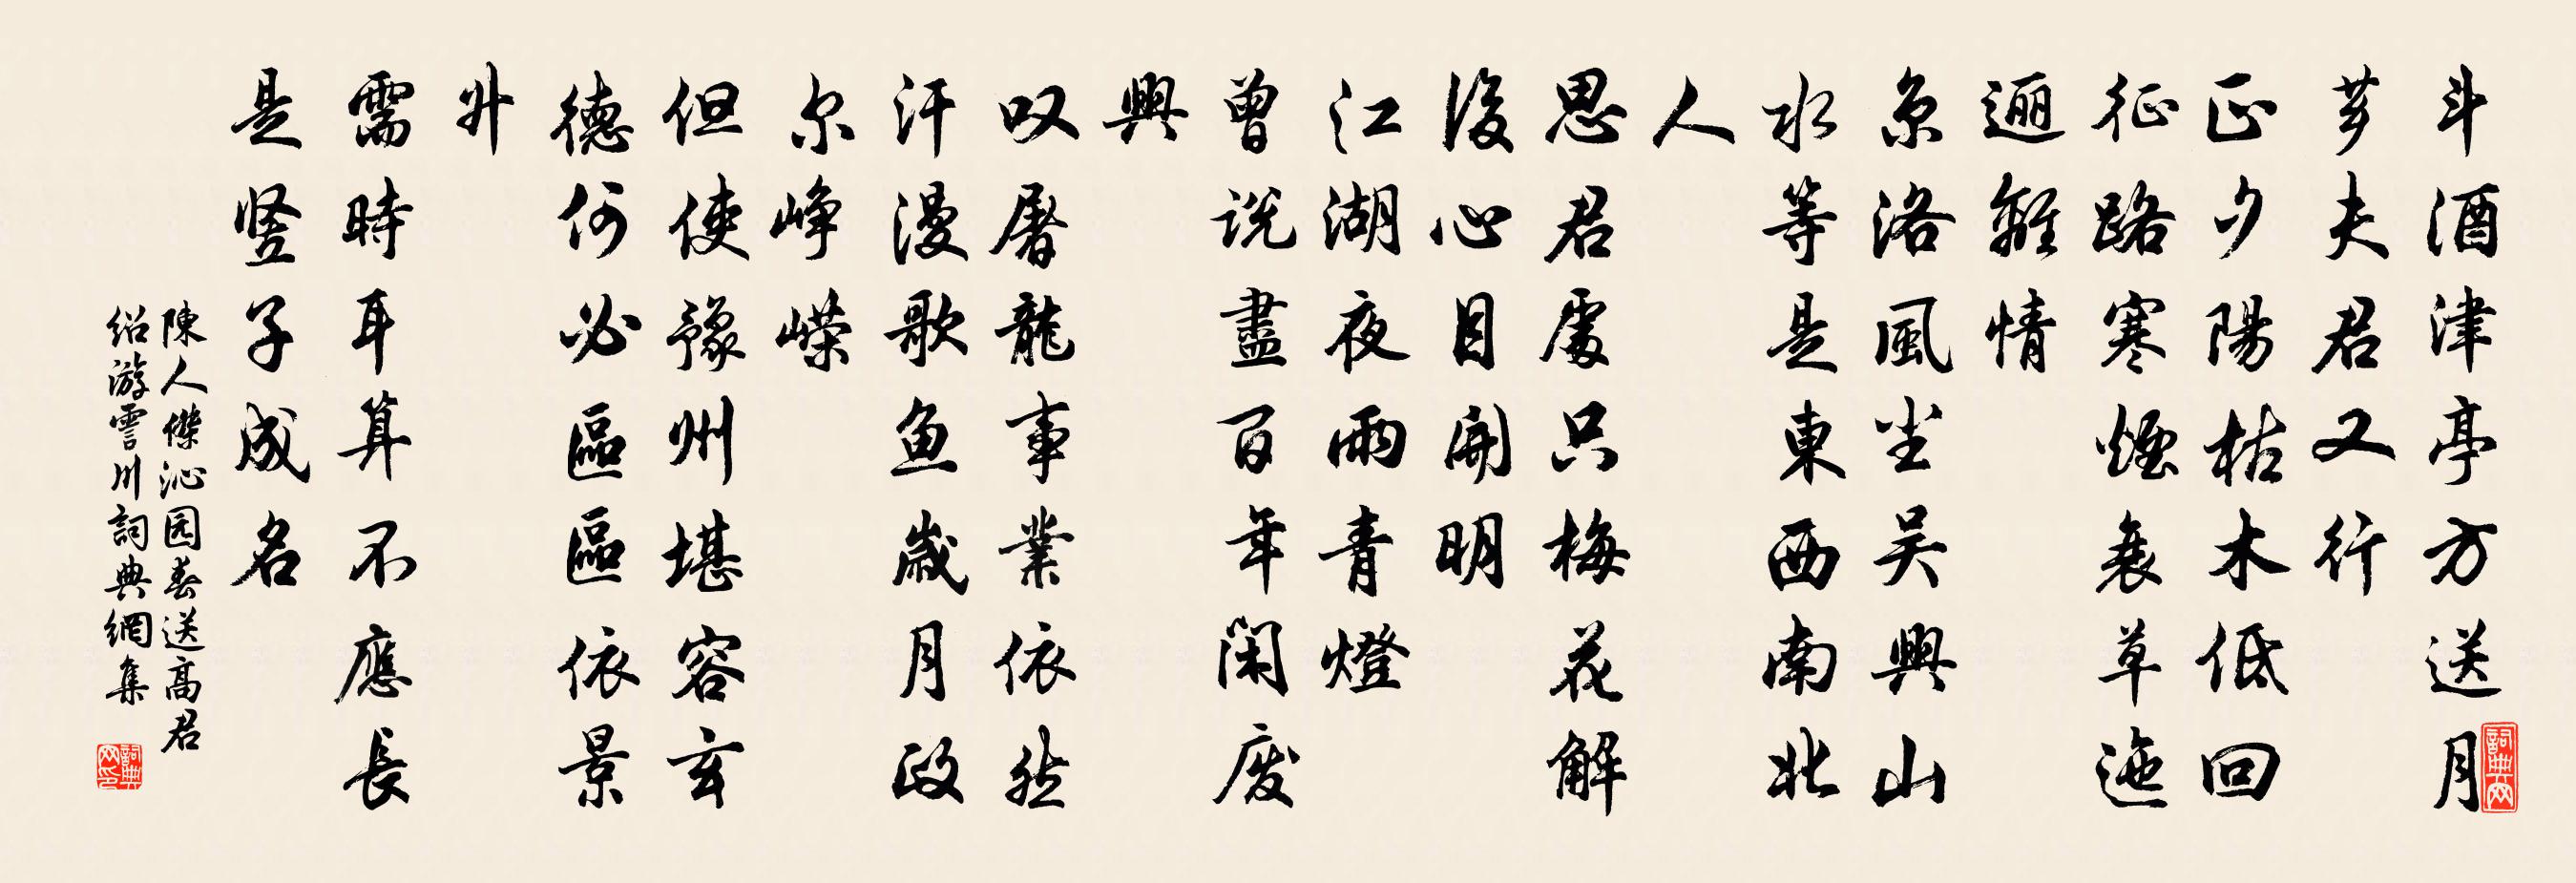 斗酒津亭方送月
芗夫君又行
正夕陽枯木低回
征路寒煙衰草迤
邐離情
京洛風尘吴興山
水等是東西南北
人
思君處只梅花解
後心目開明
江湖夜雨青燈
曾説盡百年閑廢
興
叹屠龍事業依然
汗漫歌魚歲月政
尔峥嶸
但使豫州堪容玄
德何必區區依景
升
需時耳算不應長
是竖子成名
陳人傑沁园春送高君
绍游霅川詞典網集
詞典网
詞典网印